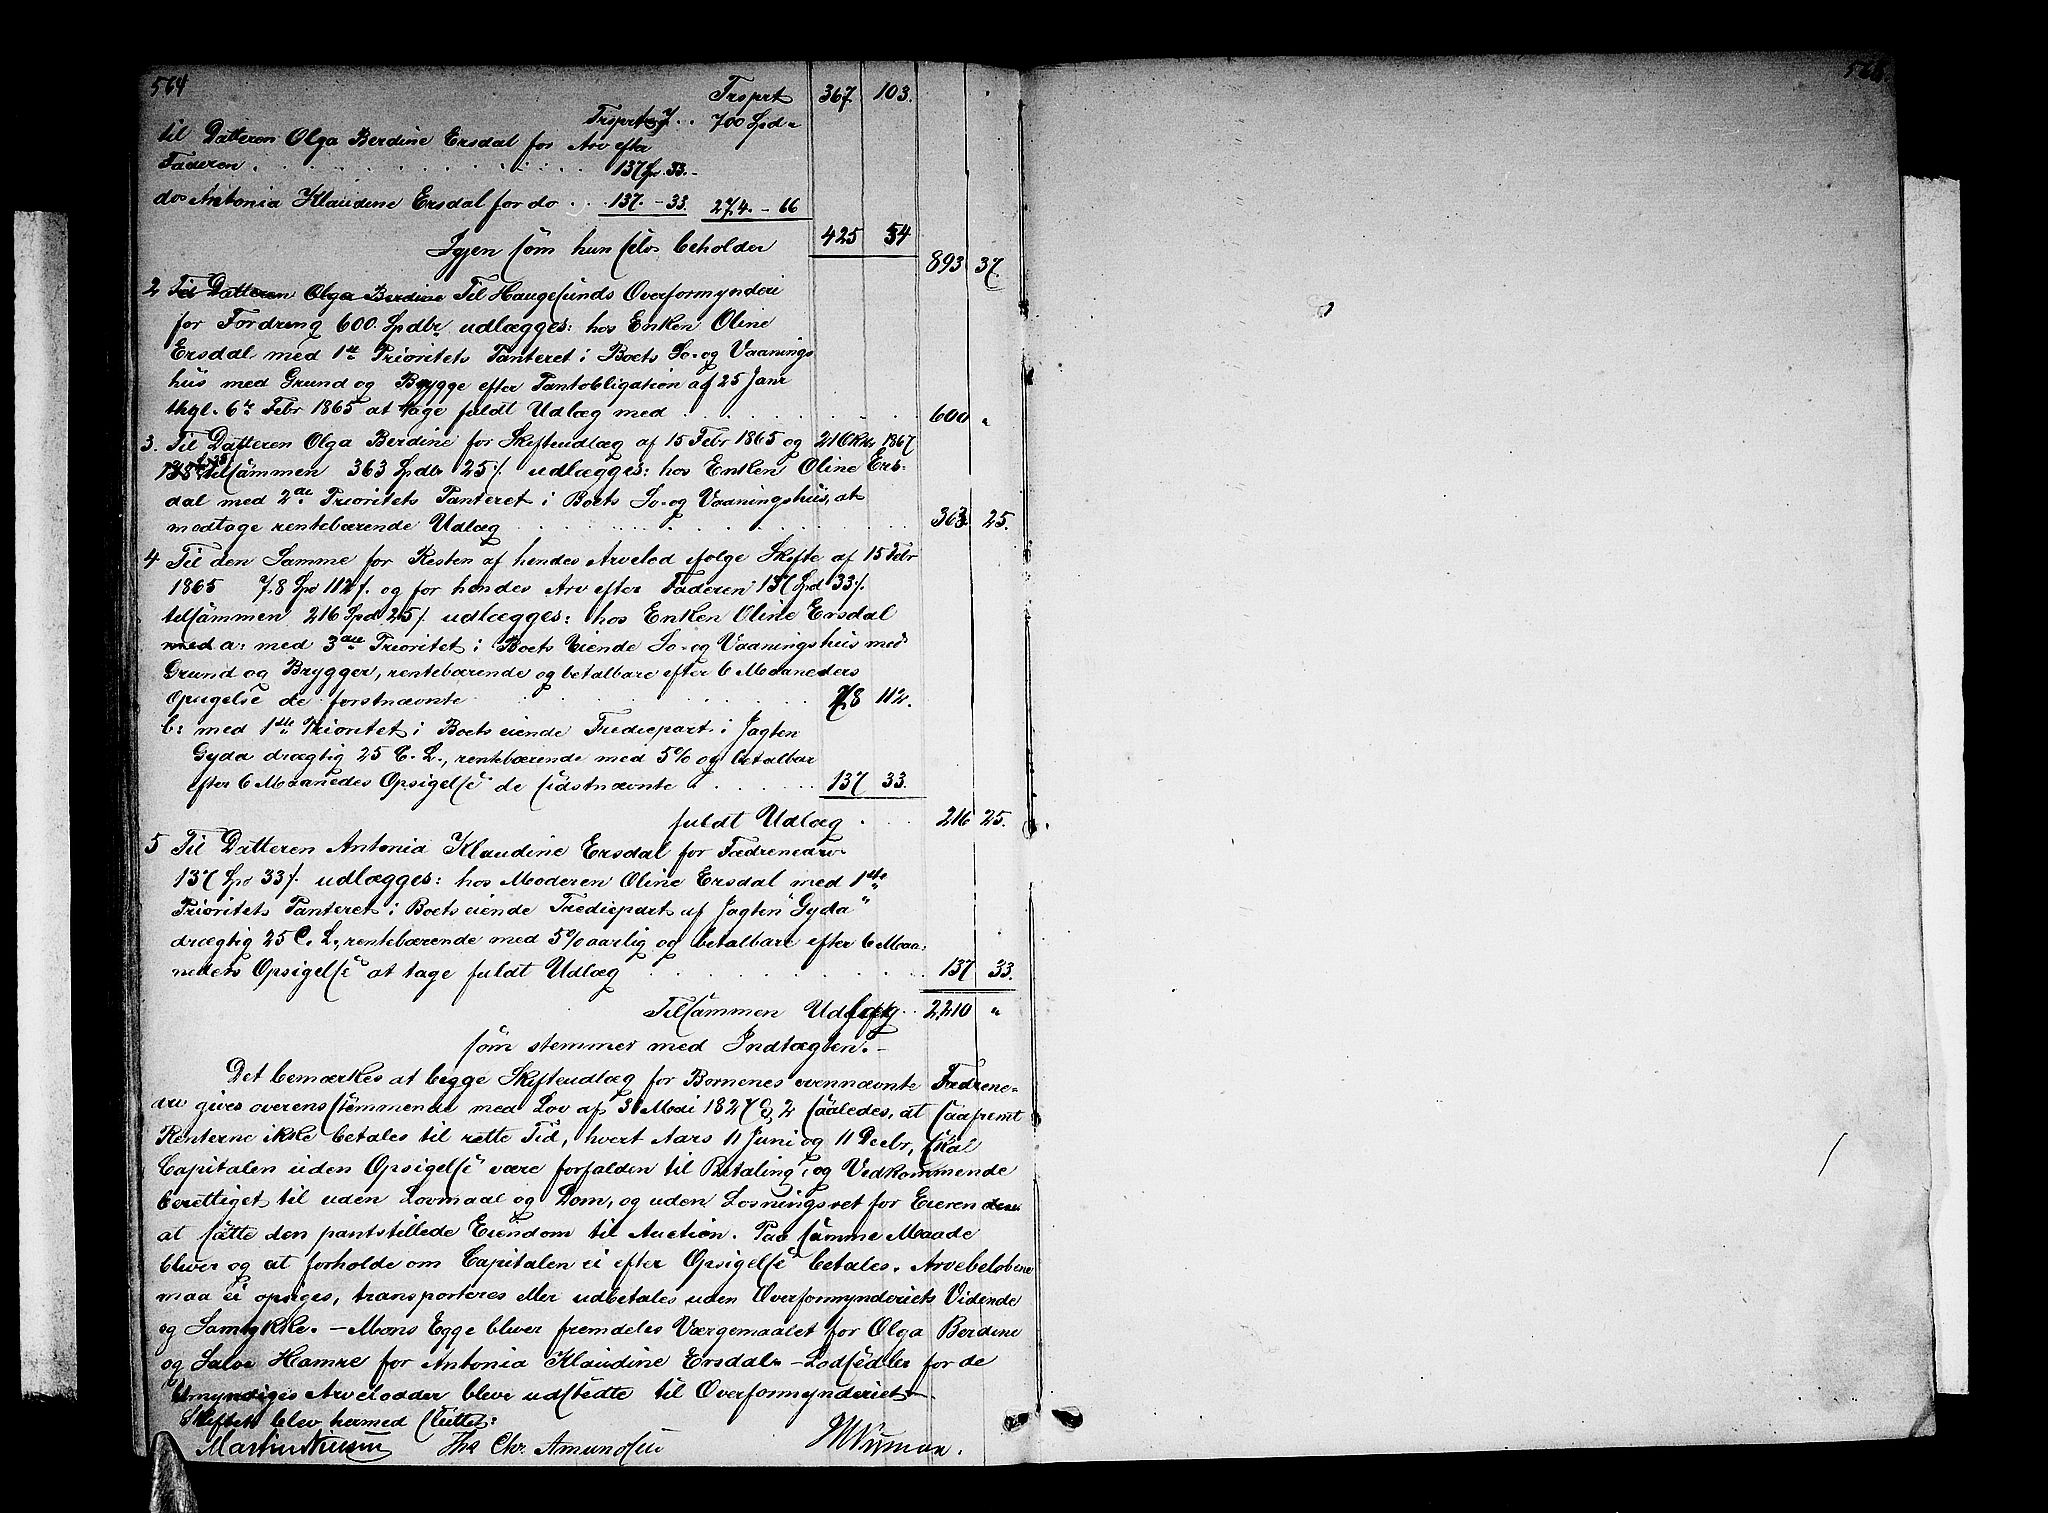 564
565
Trsprt 367. 103.
Trsprt . . 700 Spd.
til Datteren Olga Berdine Ersdal for Arv efter
Faderen . . . . . . . . . . . 137 Sp. 33.
do Antonia Klaudine Ersdal for do . . 137. - 33. 274. - 66
425 54
Igjen som hun selv beholder
893 37.
2 Til Datteren Olga Berdine Til Haugesunds Overformynderi
for Fordring 600. Spdlr udlægges: hos Enken Oline
Ersdal med 1ste Prioritets Panteret i Boets Sø- og Vaanings
hus med Grund og Brygge efter Pantobligation af 25 Janr
thgl. 6te Febr 1865 at tage fuldt Udlæg med . . . . . . 600 "
3. Til Datteren Olga Berdine for Skifteudlæg af 15 Febr 1865 og 21 Oktr 1867
tilsammen 363 Spdlr 25 /. udlægges: hos Enken Oline Ers-
dal med 2den Prioritets Panteret i Boets Sø- og Vaaningshus, at
modtage rentebærende Udlæg . . . . . . . . . 363 25.
4 Til den Samme for Resten af hendes Arvelod ifølge Skifte af 15 Febr
1865 78 Sp 112 /. og for hendes Arv efter Faderen 137 Spd 33 /.
tilsammen 216 Spd 25 /. udlægges: hos Enken Oline Ersdal
med a: med 3die Prioritet i Boets Eiende Sø- og Vaaningshus med
Grund og Brygger, rentebærende og betalbare efter 6 Maaneders
Opsigelse de førstnævnte . . . . . . . 78 112.
b: med 1ste Prioritet i Boets eiende Trediepart i Jagten
Gyda drægtig 25 C. L., rentebærende med 5% og betalbar
efter 6 Maaneders Opsigelse de sidstnævnte . . . . . . 137 33.
fuldt Udlæg . . . 216 25.
5 Til Datteren Antonia Klaudine Ersdal for Fædrenearv
137 Sp 33 /. udlægges: hos Moderen Oline Ersdal med 1ste
Prioritets Panteret i Boets eiende Trediepart af Jagten "Gyda"
drægtig 25 C. L., rentebærende med 5% aarlig og betalbare efter 6 Maa-
neders Opsigelse at tage fuldt Udlæg . . . . . . . . 137 33.
Tilsammen Udlæg . . 2210 "
som stemmer med Indtægten. -
Det bemærkes at begge Skifteudlæg for Børnenes ovennævnte Fædrene-
arv gives overensstemmende med Lov af 31 Mai 1827 § 2 saaledes, at saafremt
Renterne ikke betales til rette Tid, hvert Aars 11 Juni og 11 Decbr, skal
Capitalen uden Opsigelse være forfalden til Betaling, og Vedkommende
berettiget til uden Lovmaal og Dom, og uden Løsningsret for Eieren
at sætte den pantstillede Eiendom til Auction. Paa samme Maade
bliver og at forholde om Capitalen ei efter Opsigelse betales. Arvebeløbene
maa ei opsiges, transporteres eller udbetales uden Overformynderiets Vidende
og Samtykke. - Mons Egge bliver fremdeles Værgemaalet for Olga Berdine
og Salve Hamre for Antonia Klaudine Ersdal. - Lodsedler for de
Umyndiges Arvelodder bleve udstedte til Overformynderiet -
Skiftet blev hermed sluttet:
Martin Nielsen Ths Chr. Amundsen